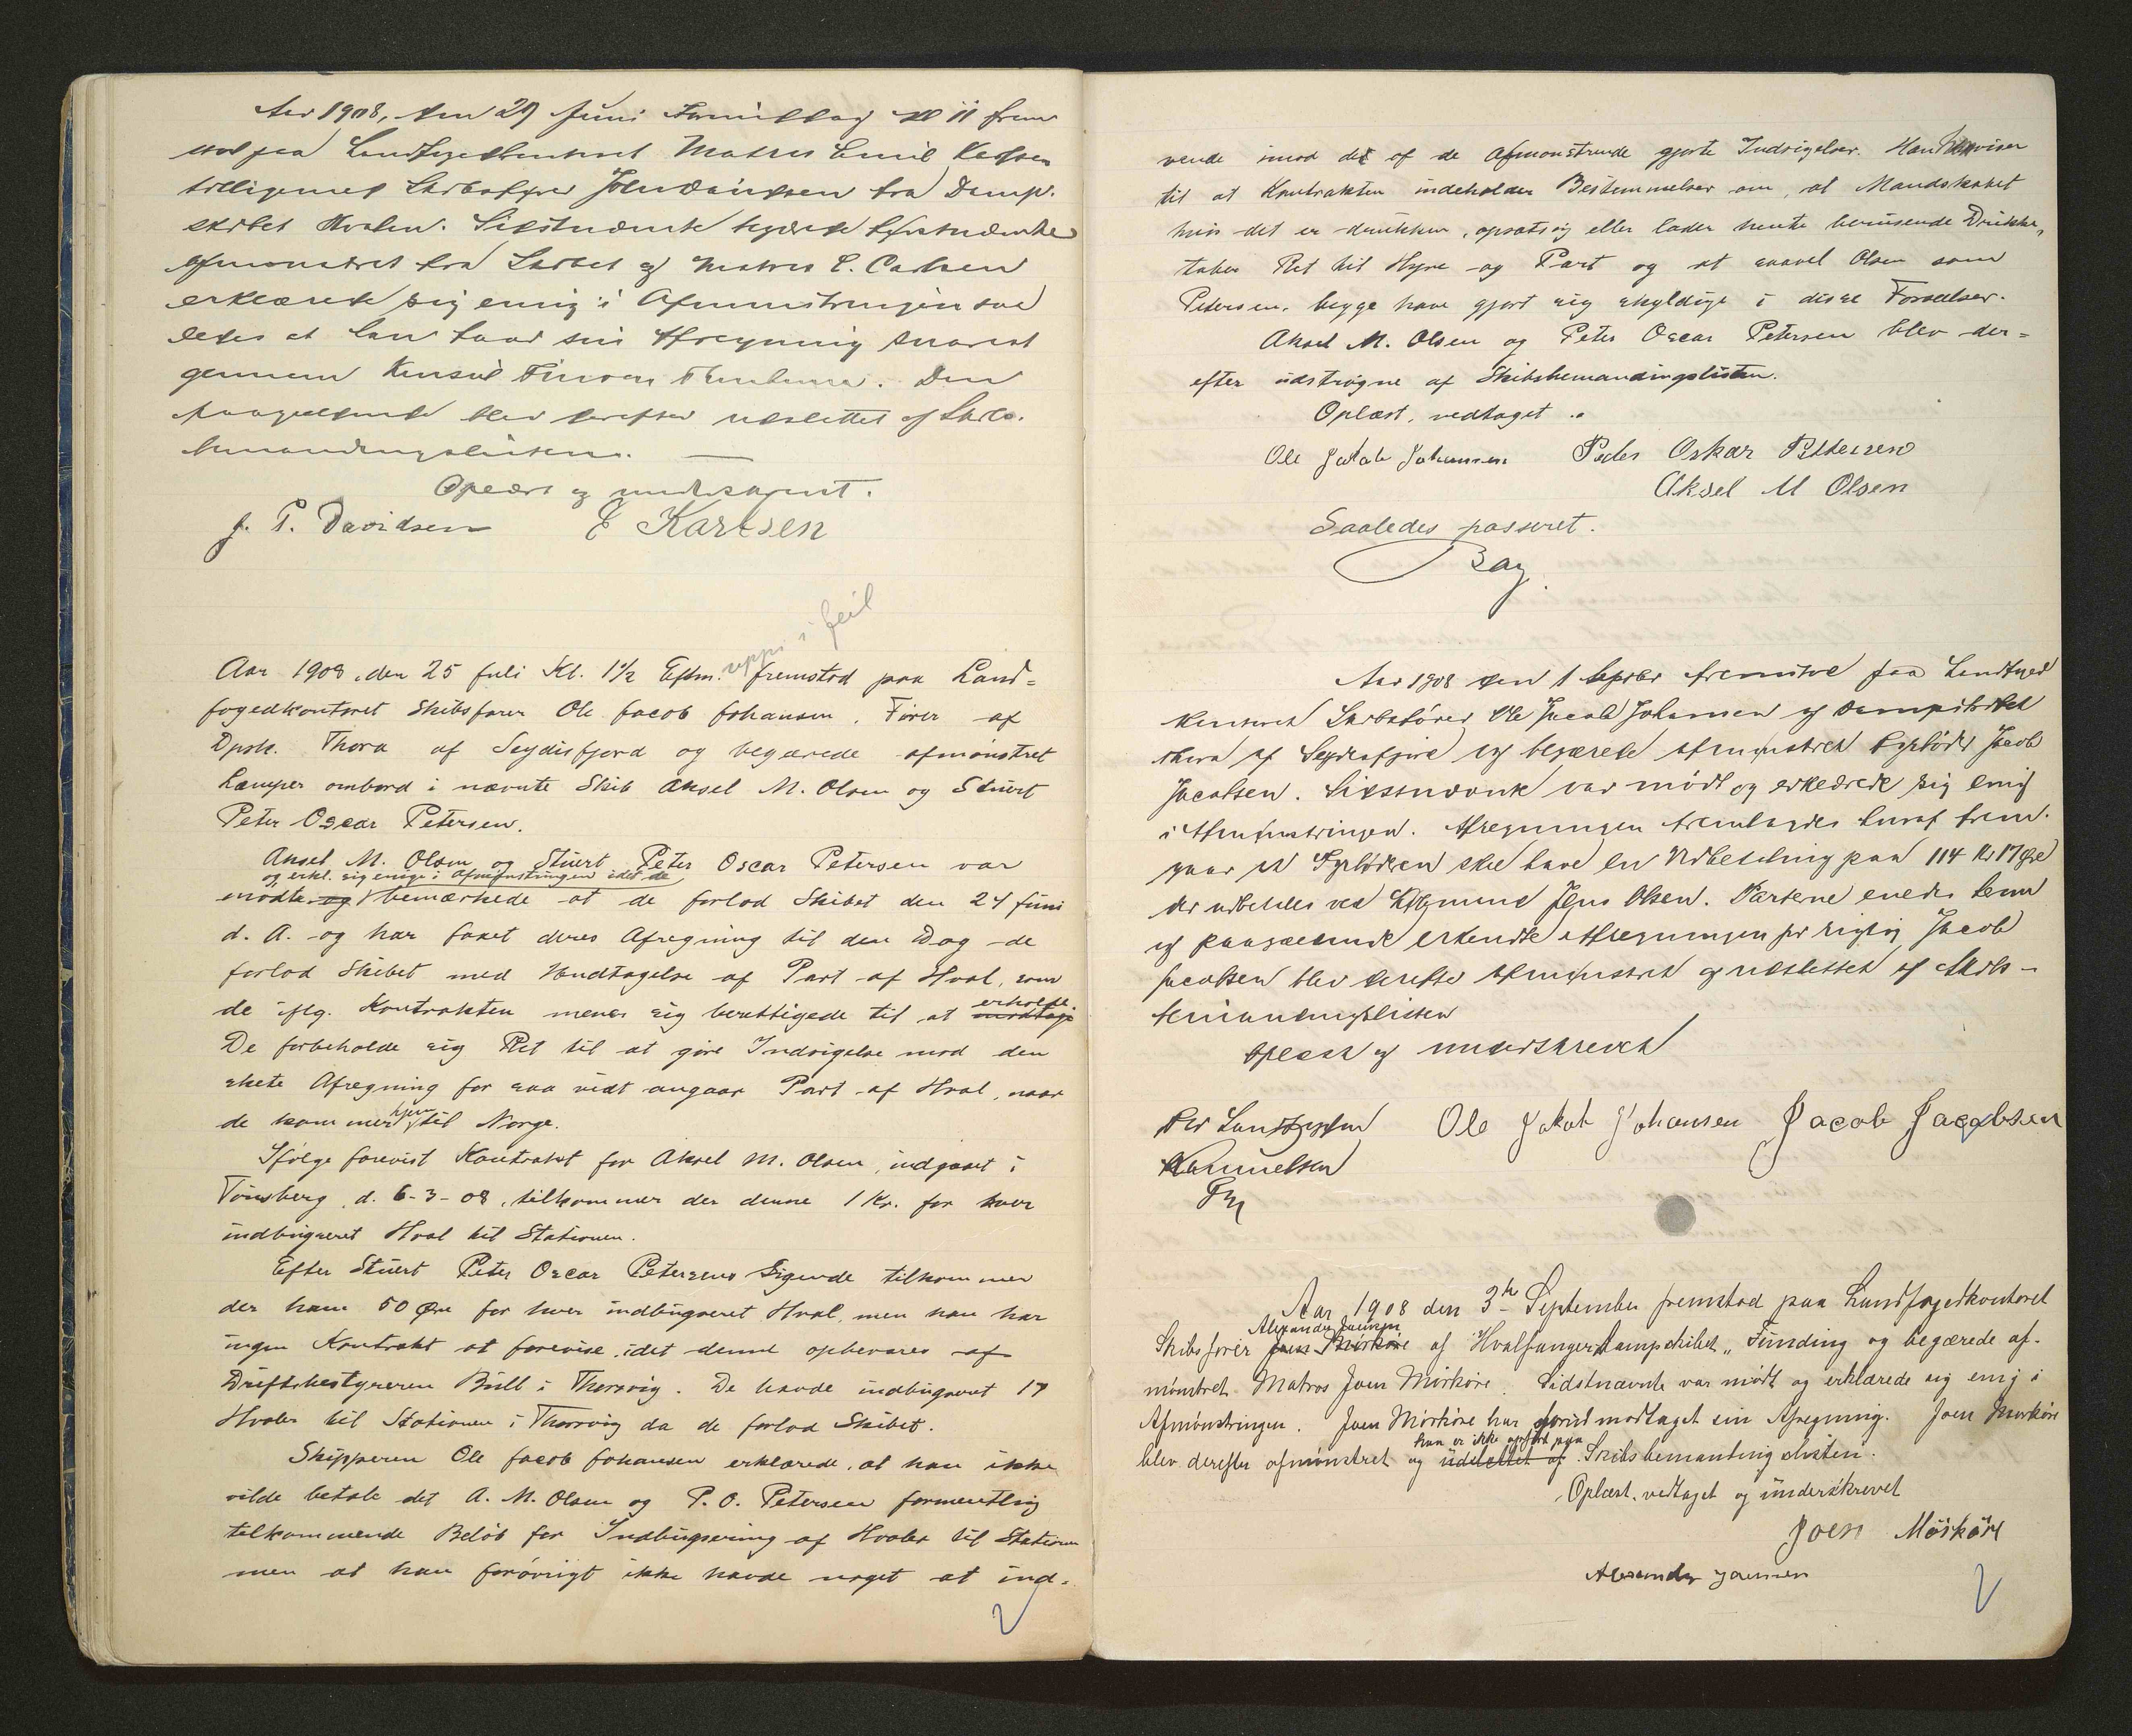 Aar 1908, den 29 Juni Formiddag Kl 11 frem
stod paa Landfogedkontoret Matros Emil Karlsen
tilligemed Skibsfører John Davidsen fra Damp-
skibet Hvalen. Sidstnævnte begærede førstnævnte
afmønstret fra Skibet og Matros E. Carlsen
erklærede sig enig i Afmønstringen saa
ledes at han faar sin Afregning snarest
gennem Konsul. Den
paagældende blev derefter udslettet af Skibs-
bemandingslisten.
Oplæst og underskrevet.
J. P. Davidsen E Karlsen
uppi i feil
Aar 1908, den 25 Juli Kl. 1½ Eftm. fremstod paa Land=
fogedkontoret Skibsfører Ole Jacob Johansen, Fører af
Dpsk. Thora af Seydisfjord og begærede afmönstret
Læmper ombord i nævnte Skib Aksel M. Olsen og Stüert
Peter Oscar Petersen.
Aksel M. Olsen og Stüert Peter Oscar Petersen var
og erkl. sig enige i Afmønstringen idet de
mødte og bemærkede at de forlod Skibet den 24 Juni
d. A. og har faaet deres Afregning til den Dag de
forlod Skibet med Undtagelse af Part af Hval, som
de iflg. Kontrakten mener sig berettigede til at modtage erholde.
De forbeholde sig Ret til at gøre Indsigelse mod den
skete Afregning for saa vidt angaar Part af Hval, naar
de kommer hjem til Norge.
Ifølge forevist Kontrakt for Aksel M. Olsen, indgaaet i
Tönsberg, d. 6-3-08, tilkommer der denne 1 Kr. for hver
indbugseret Hval til Stationen.
Efter Stüert Peter Oscar Petersens Sigende tilkommer
der ham 50 Øre for hver indbugseret Hval, men han har
ingen Kontrakt at forevise, idet denne opbevares af
Driftsbestyreren Bull i Thorsvig. De havde indbugseret 17
Hvaler til Stationen i Thorsvig da de forlod Skibet.
Skipperen Ole Jacob Johansen erklærede, at han ikke
vilde betale det A. M. Olsen og P. O. Petersen formentlig
tilkommende Beløb for Indbugsering af Hvaler til Stationen
men at han forövrigt ikke havde noget at ind-
vende imod det af de Afmonstrende gjorte Indsigelser. Han henviser
til at Kontrakten indeholder Bestemmelser om, at Mandskabet
hvis det er drukken, opsætsig eller lader hente berusende Drikke,
taber Ret til Hyre og Part og at saavel Olsen som
Petersen, begge have gjort sig skyldige i disse Forseelser.
Aksel M. Olsen og Peter Oscar Petersen blev der=
efter udstrøgne af Skibsbemandingslisten.
Oplæst, vedtaget.
Ole Jakob Johansen Peder Oskar Pettersen
Aksel M Olsen
Saaledes passeret.
Bay.
Aar 1908 den 1 Septbr fremstod paa Landfoged
kontoret Skibsfører Ole Jacob Johansen af Dampskibet
Thora af Seydisfjord og begærede afmønstret Fyrbøder Jacob
Jacobsen. Sidstnævnte var mødt og erklærede sig enig
i Afmønstringen. Afregningen fremlagdes hvoraf frem-
gaar at Fyrbøderen skal have en Udbetaling paa 114 Kr 17 Øre
der udbetales ved Jens Olsen. Parterne enedes herom
og paagældende erkendte Afregningen for rigtig. Jacob
Jacobsen blev derefter afmønstret og udslettet af Skibs-
bemandingslisten
Oplæst og underskrevet
Ole Jakob Johansen Jacob Jacobsen
Samuelsen
Aar 1908 den 3die September fremstod paa Landfogedkontoret
Alexander Joensen
Skibsfører Joen Mörköre af Hvalfangerdampskibet „Funding og begærede af-
mönstret Matros Joen Mörköre. Sidstnævnte var mødt og erklærede sig enig i
Afmönstringen. Joen Mörköre har forud modtaget sin Afregning. Joen Mörköre
han er ikke opført paa
blev derefter afmönstret og udslettet af Skibsbemandingslisten.
Oplæst, vedtaget og underskrevet
Joen Mörköre
Alexander Joensen